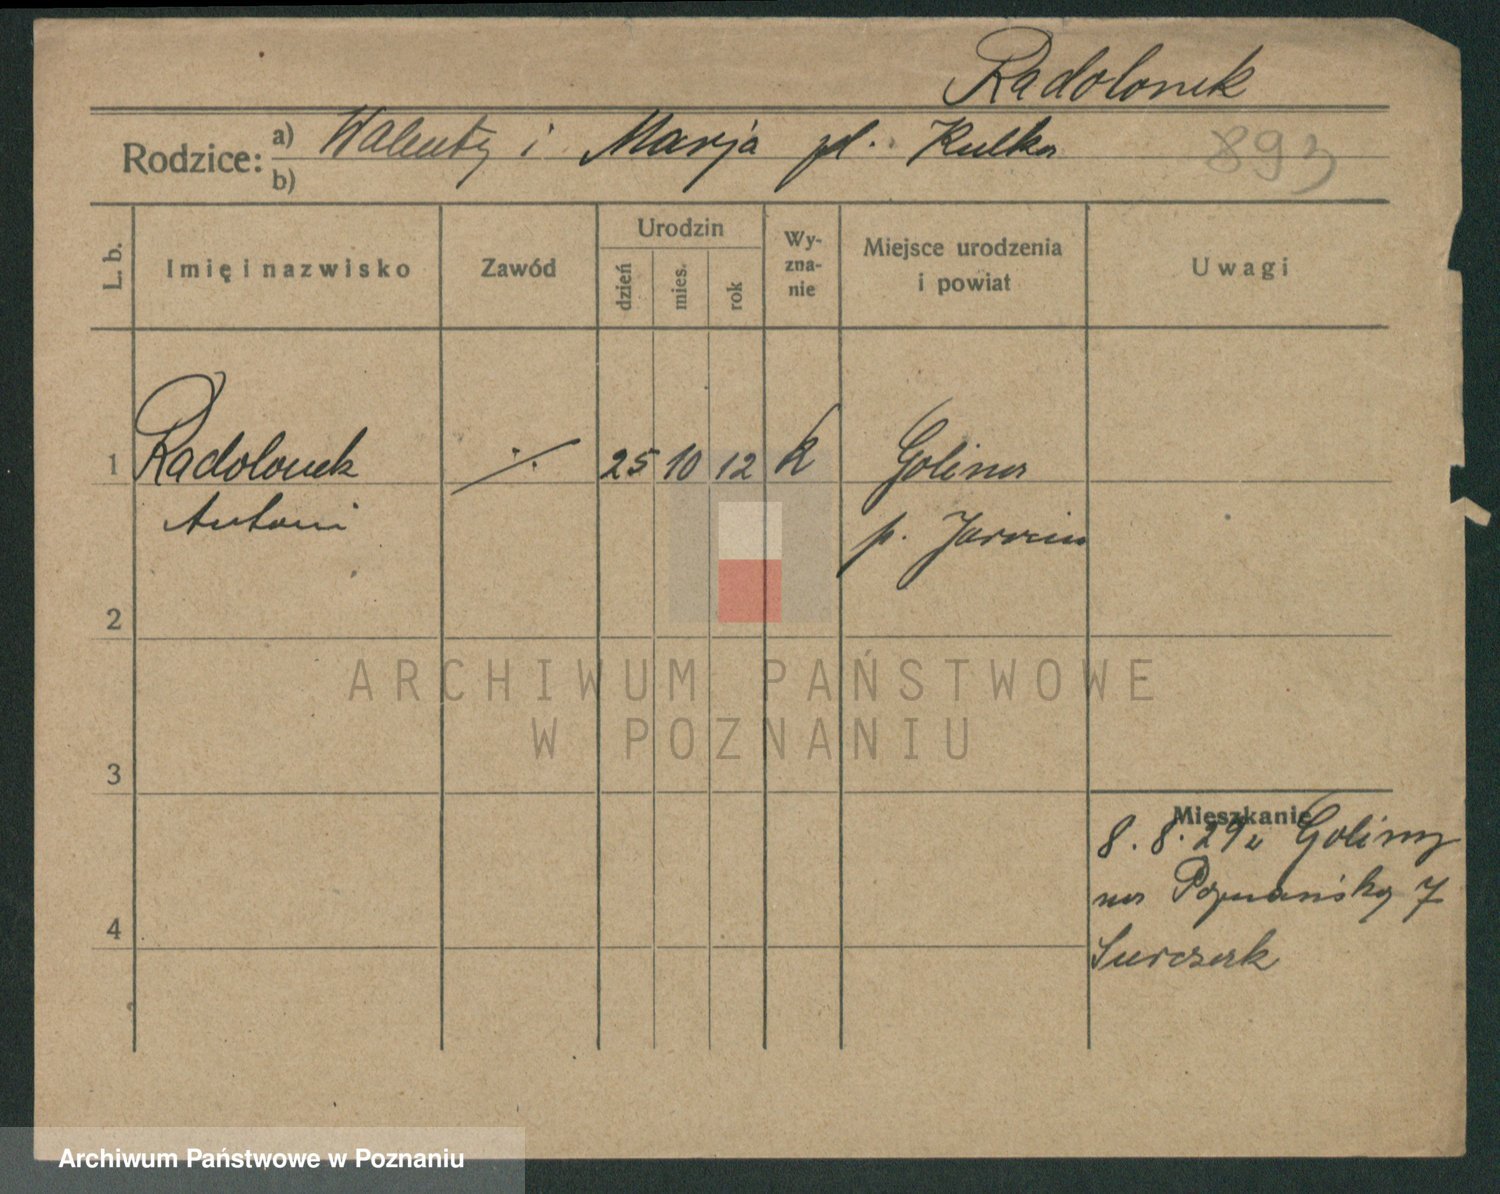 Radolonek
Rodzice: a) Walenty i Marja zd. Kulka
b)
893
L. b.
Imię i nazwisko
Zawód
Urodzin
dzień
mies.
rok
Wy-
zna-
nie
Miejsce urodzenia
i powiat
Uwagi
1 Radolonek ./. 25 10 12 k Golina
Antoni p. Jarocin
2
ARCHIWUM PAŃSTWOWE
W POZNANIU
3
Mieszkanie
8. 8. 29 z Goliny
na Poznańską 7
4
Archiwum Państwowe w Poznaniu